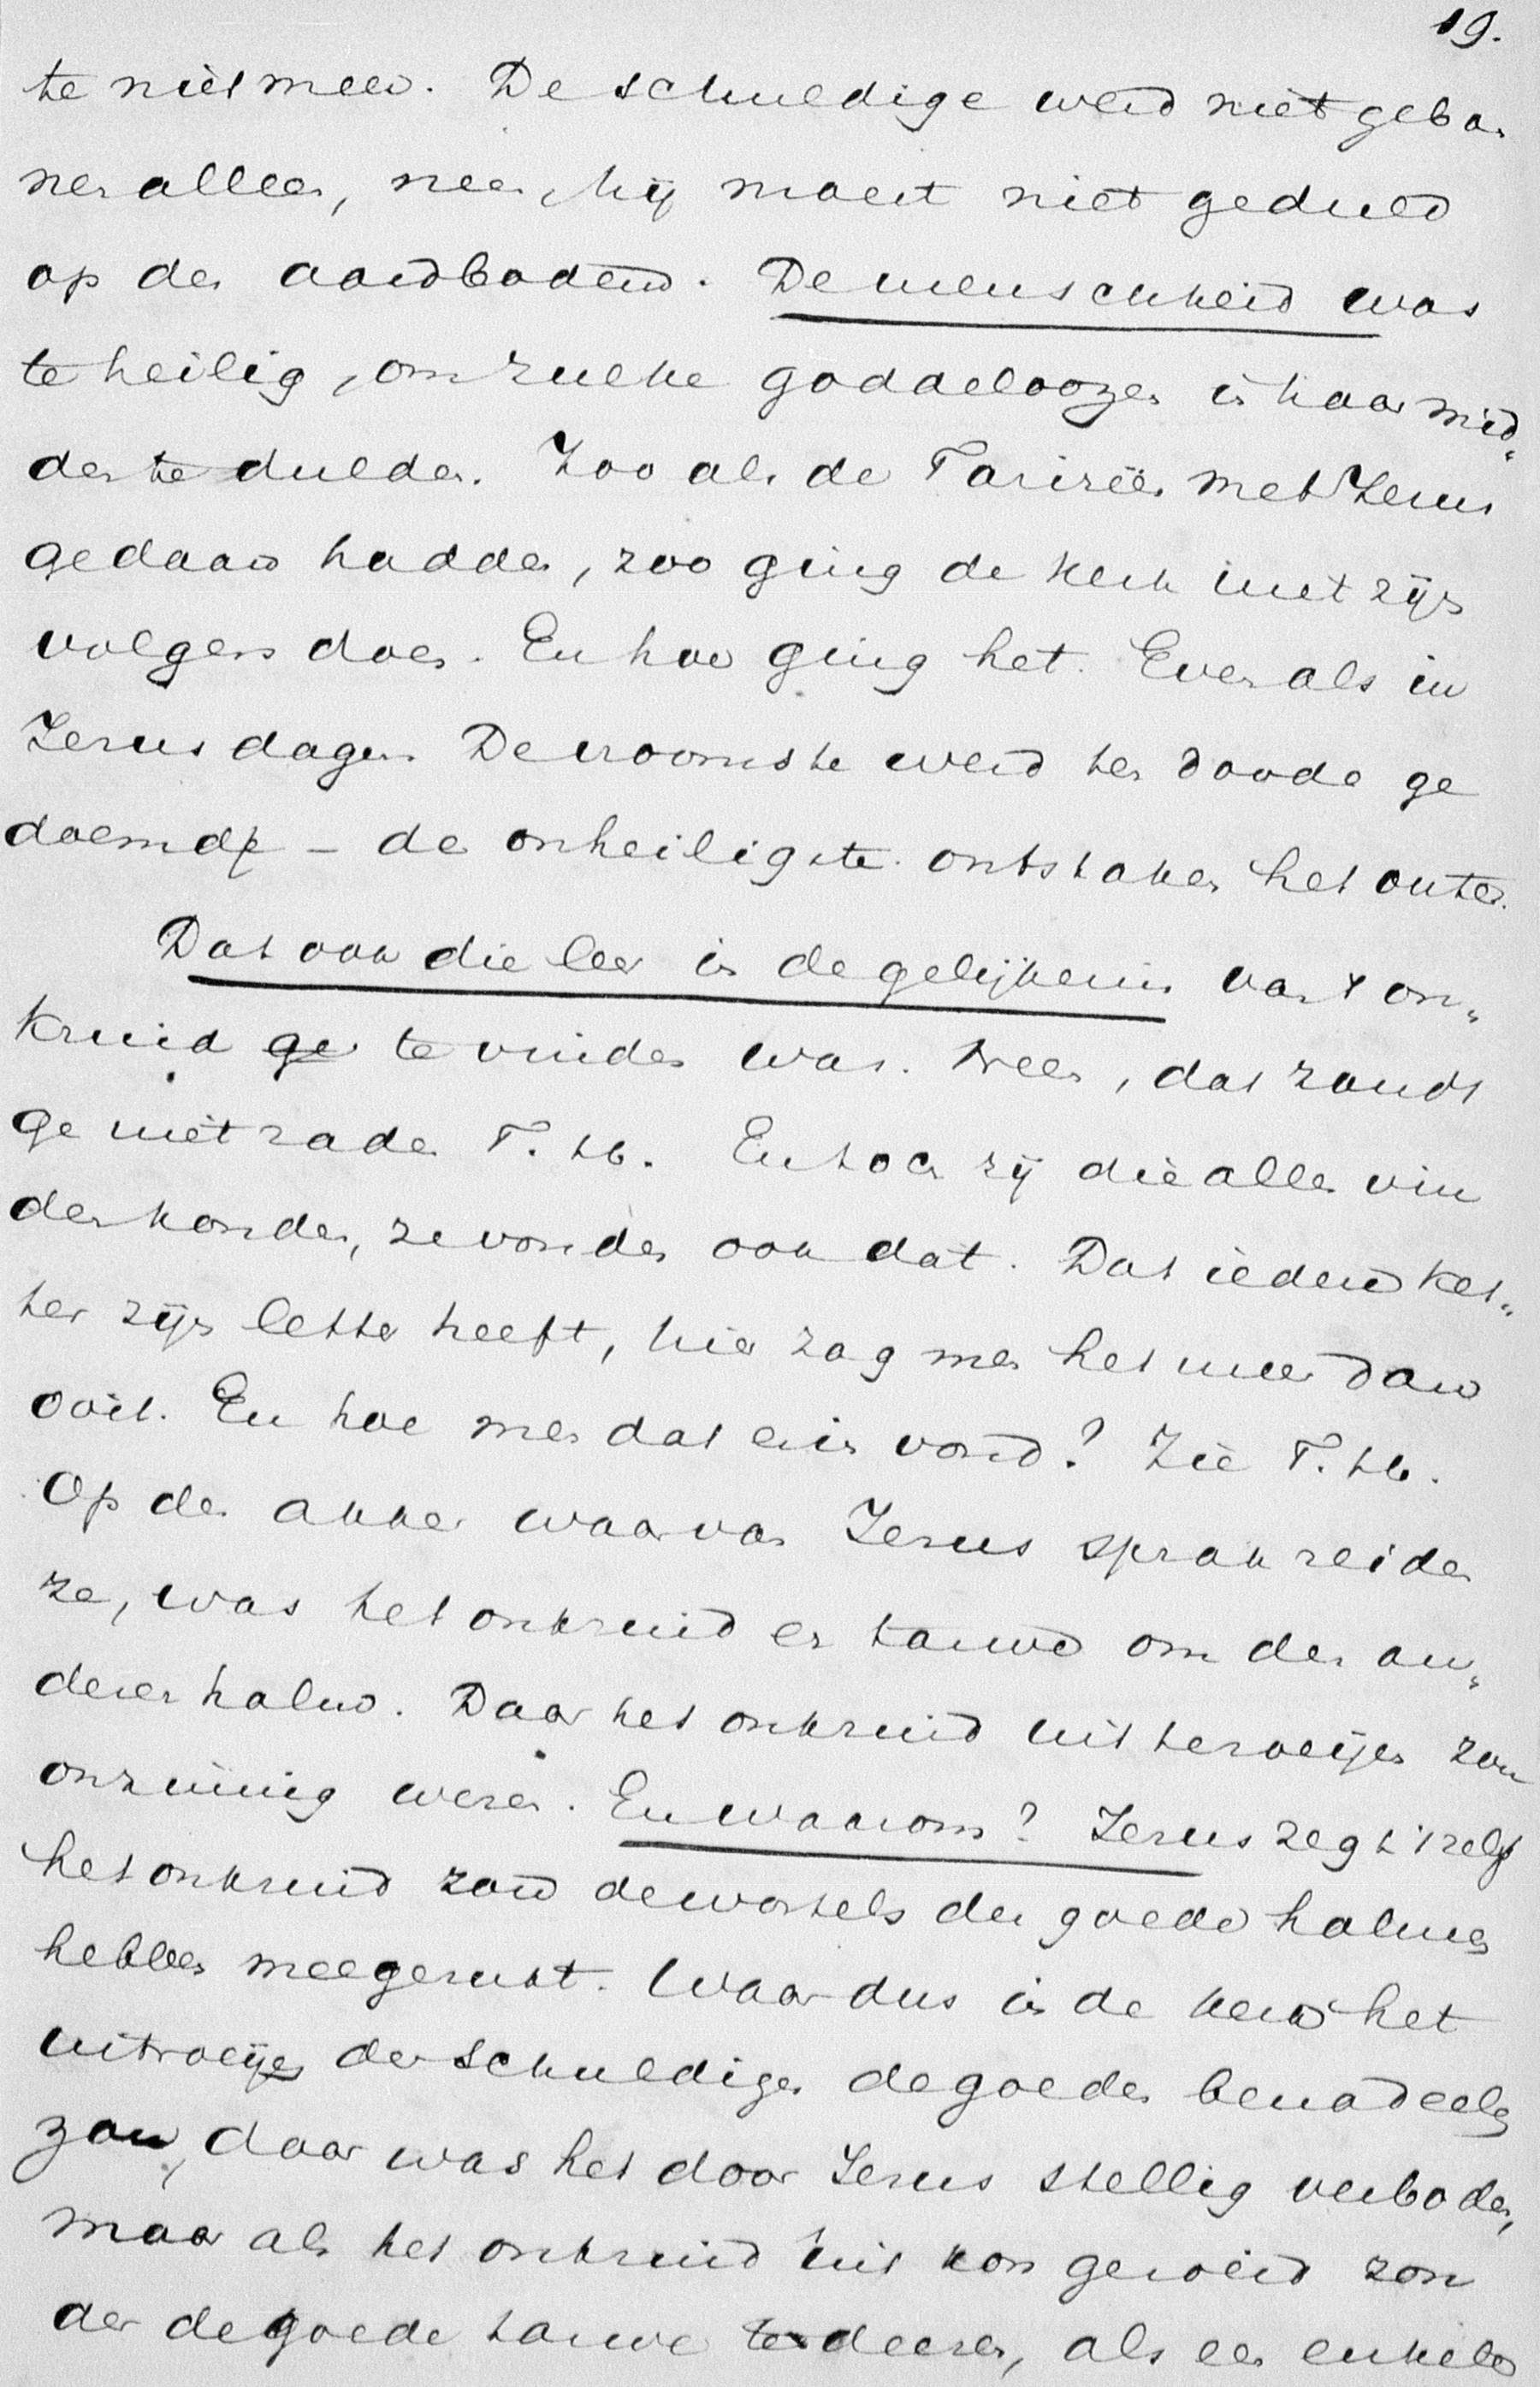 19.
te niet meer. De schuldige werd niet geban„
nen alleen, neen, hij moest niet geduld
op den aardbodem. De menschheid was
te heilig, om zulke goddeloozen in haar mid„
den te dulden. Zoo als de Farizeën met Jezus
gedaan hadden, zoo ging de kerk met zijn
volgers doen. En hoe ging het. Even als in
Jezus dagen. De vroomste werd ten doode ge
doemd – de onheiligste ontstaken het outer.
Dat ook die leer in de gelijkenis van 't on„
kruid ge te vinden was. Neen, dat zoudt
ge niet raden T. H. En toch zij die alles vin
den konden, ze vonden ook dat. Dat ieder ket„
ter zijn letter heeft, hier zag men het meer dan
ooit. En hoe men dat er in vond? Zie T. H.
Op den akker waarvan Jezus sprak zeiden
ze, was het onkruid en tarwe om den an„
deren halm. Daar het onkruid uit te roeijen zou
onzinnig wezen. En waarom? Jezus zegt 't zelf
het onkruid zou de wortels der goede halmen
hebben meegerukt. Waar dus in de kerk het
uitroeijen der schuldigen de goeden benadeelen
zou, daar was het door Jezus stellig verboden,
maar als het onkruid uit kon geroeid zon
der de goede tarwe te deeren, als een enkele